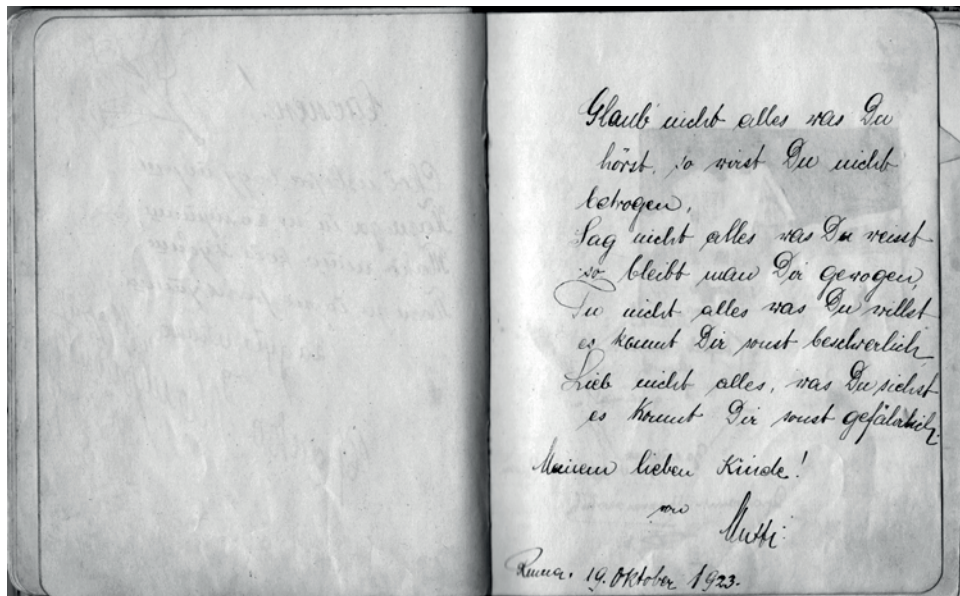 Glaub nicht alles was Du
hörst, so wirst Du nicht
betrogen,
Sag nicht alles was Du weisst
so bleibt man Dir gewogen,
Tu nicht alles was Du willst
es kommt Dir sonst beschwerlich,
Lieb nicht alles, was Du siehst
es kommt Dir sonst gefährlich.
Meinem lieben Kinde!
von
Mutti.
Ruma. 19. Oktober 1923.